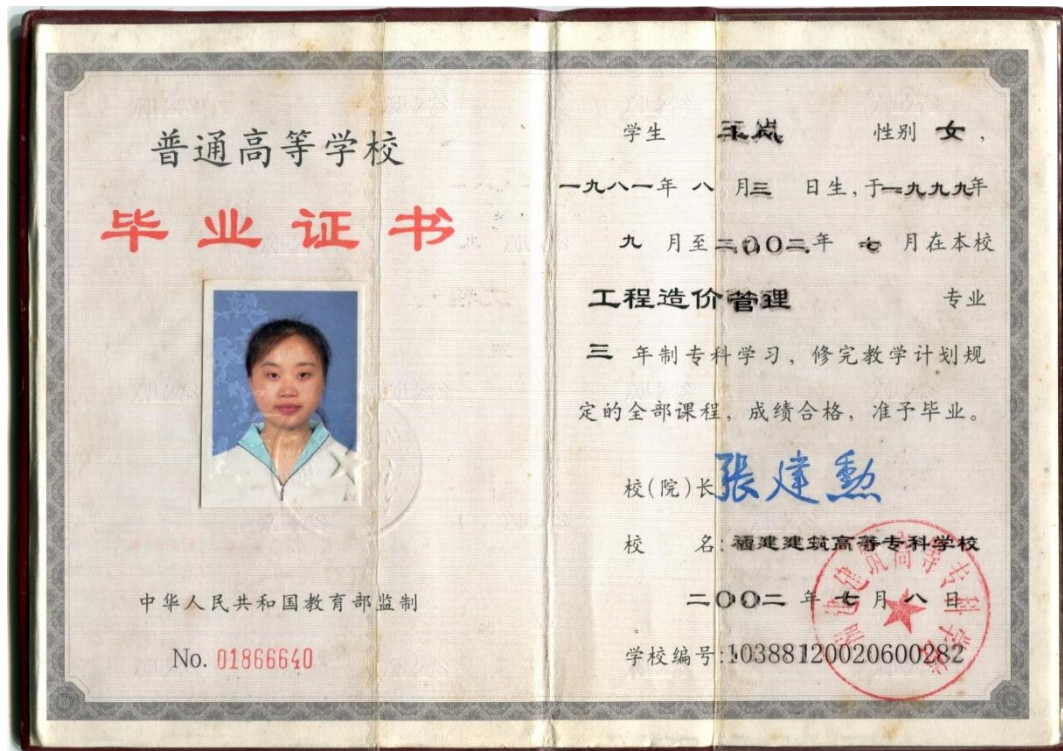 普通高等学校
毕业证书
中华人民共和国教育部监制
No. 01866640
学生 王岚 性别 女，
一九八一年 八 月三 日生，于一九九九年
九 月至二〇〇二年 七 月在本校
工程造价管理 专业
三 年制专科学习，修完教学计划规
定的全部课程，成绩合格，准予毕业。
校(院)长 張建勳
校 名:福建建筑高等专科学校
二〇〇二 年 七 月 八 日
学校编号:10388120020600282
福建建筑高等专科学校